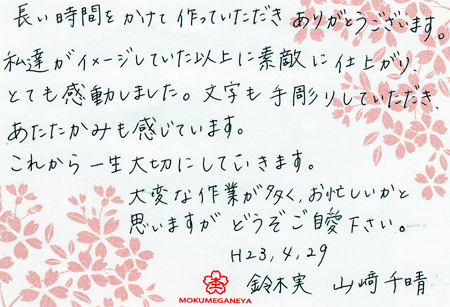 長い時間をかけて作っていただきありがとうございます。
私達がイメージしていた以上に素敵に仕上がり、
とても感動しました。文字も手彫りしていただき、
あたたかみも感じています。
これから一生大切にしていきます。
大変な作業が多く、お忙しいかと
思いますがどうぞご自愛下さい。
H23,4,29
鈴木実 山崎千晴
MOKUMEGANEYA